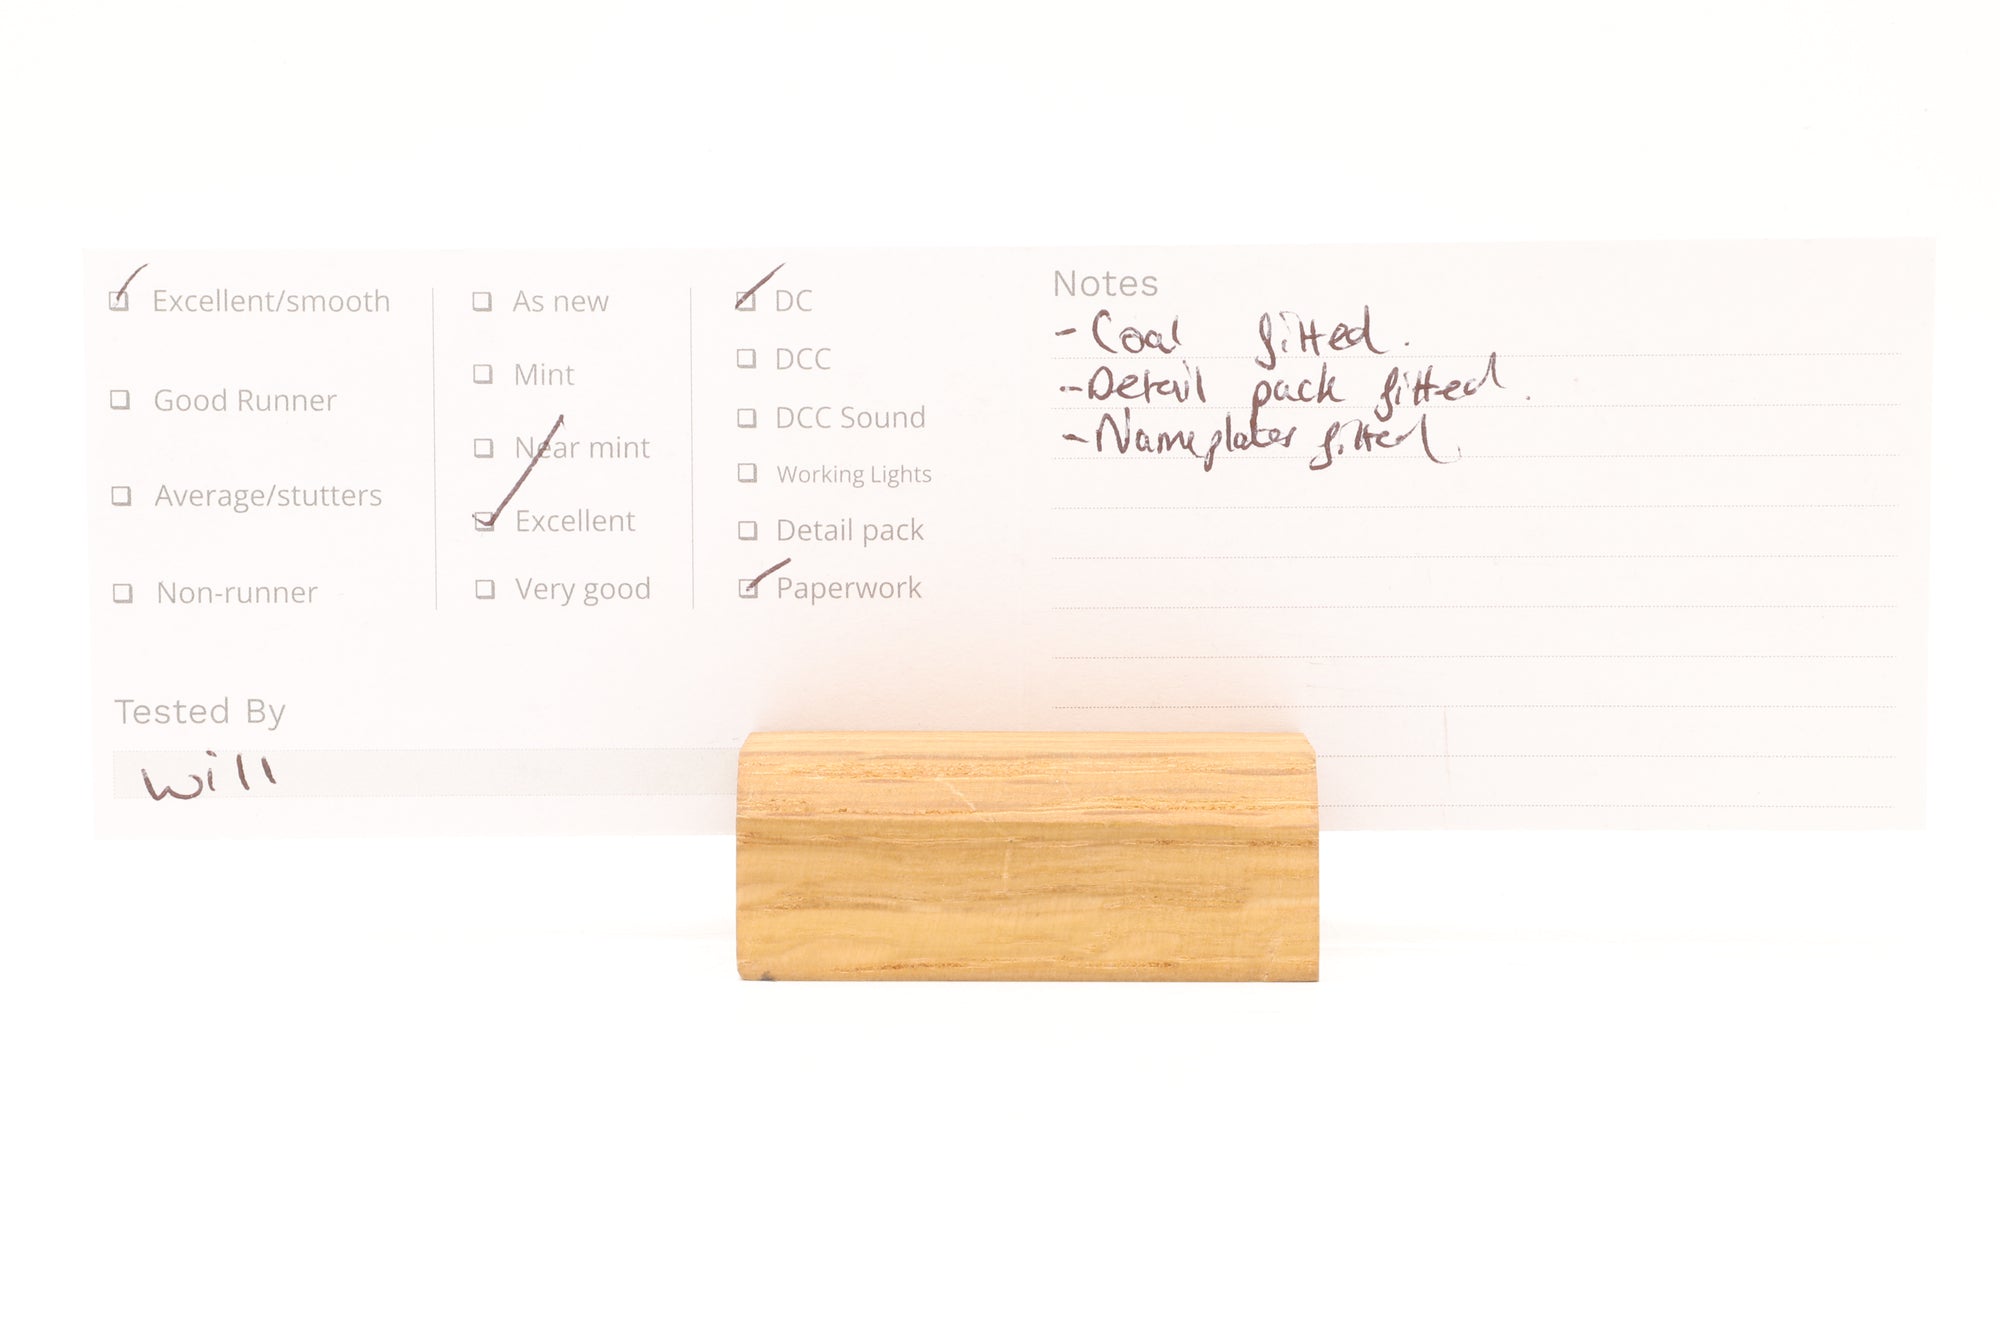 Excellent/smooth
Good Runner
Average/stutters
Non-runner
As new
Mint
Near mint
Excellent
Very good
DC
DCC
DCC Sound
Working Lights
Detail pack
Paperwork
Tested By
Will
Notes
- Coal fitted.
- Detail pack fitted.
- Nameplates fitted.